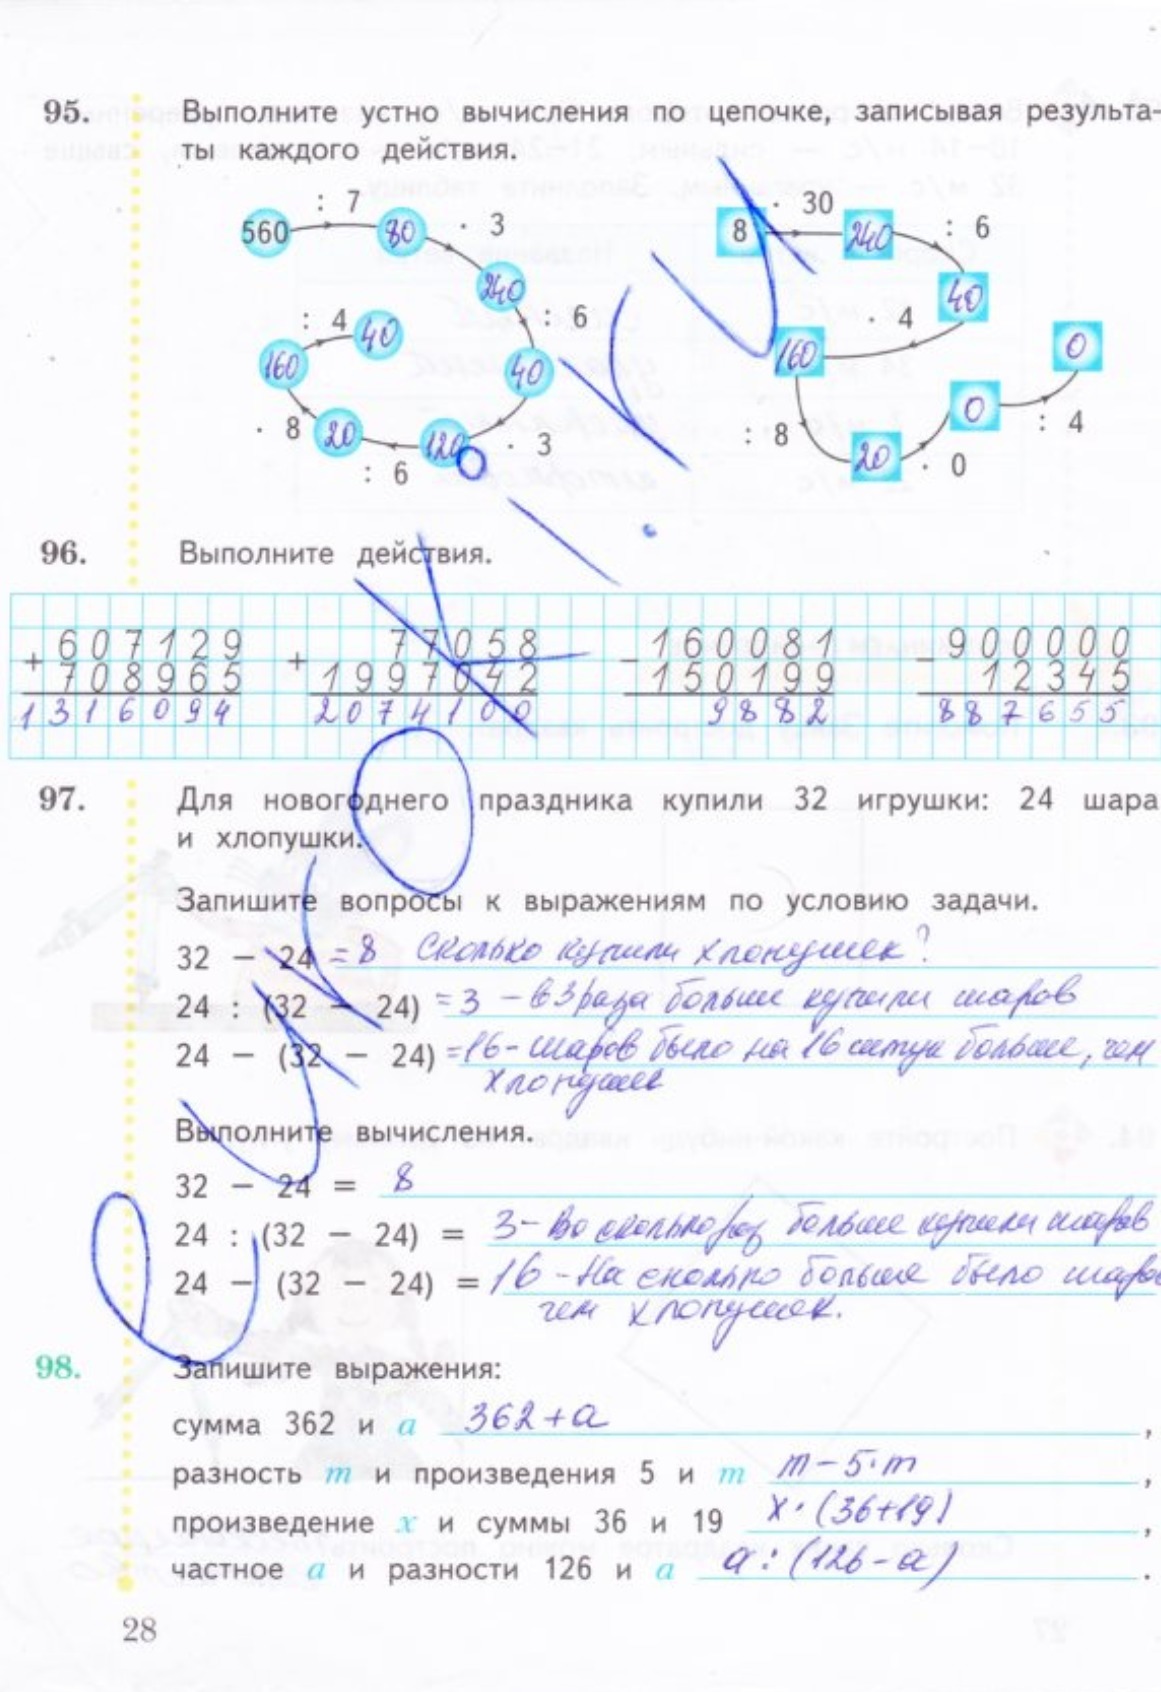 95. Выполните устно вычисления по цепочке, записывая результа-
ты каждого действия.
560 : 7 80 · 3 240 : 6 40 · 3 120 : 6 20 · 8 160 : 4 40
8 · 30 240 : 6 40 · 4 160 : 8 20 · 0 0 : 4 0
96. Выполните действия.
+ 607129 + 77058 − 160081 − 900000
708965 1997042 150199 12345
1316094 2074100 9882 887655
97. Для новогоднего праздника купили 32 игрушки: 24 шара
и хлопушки.
Запишите вопросы к выражениям по условию задачи.
32 − 24 = 8 Сколько купили хлопушек?
24 : (32 − 24) = 3 – в 3 раза больше купили шаров
24 − (32 − 24) = 16 - шаров было на 16 штук больше, чем
хлопушек
Выполните вычисления.
32 − 24 = 8
24 : (32 − 24) = 3 – Во сколько раз больше купили шаров
24 − (32 − 24) = 16 - На сколько больше было шаров
чем хлопушек.
98. Запишите выражения:
сумма 362 и a 362 + a ,
разность m и произведения 5 и m m − 5 · m ,
произведение x и суммы 36 и 19 x · (36+19) ,
частное a и разности 126 и a a : (126 − a) .
28